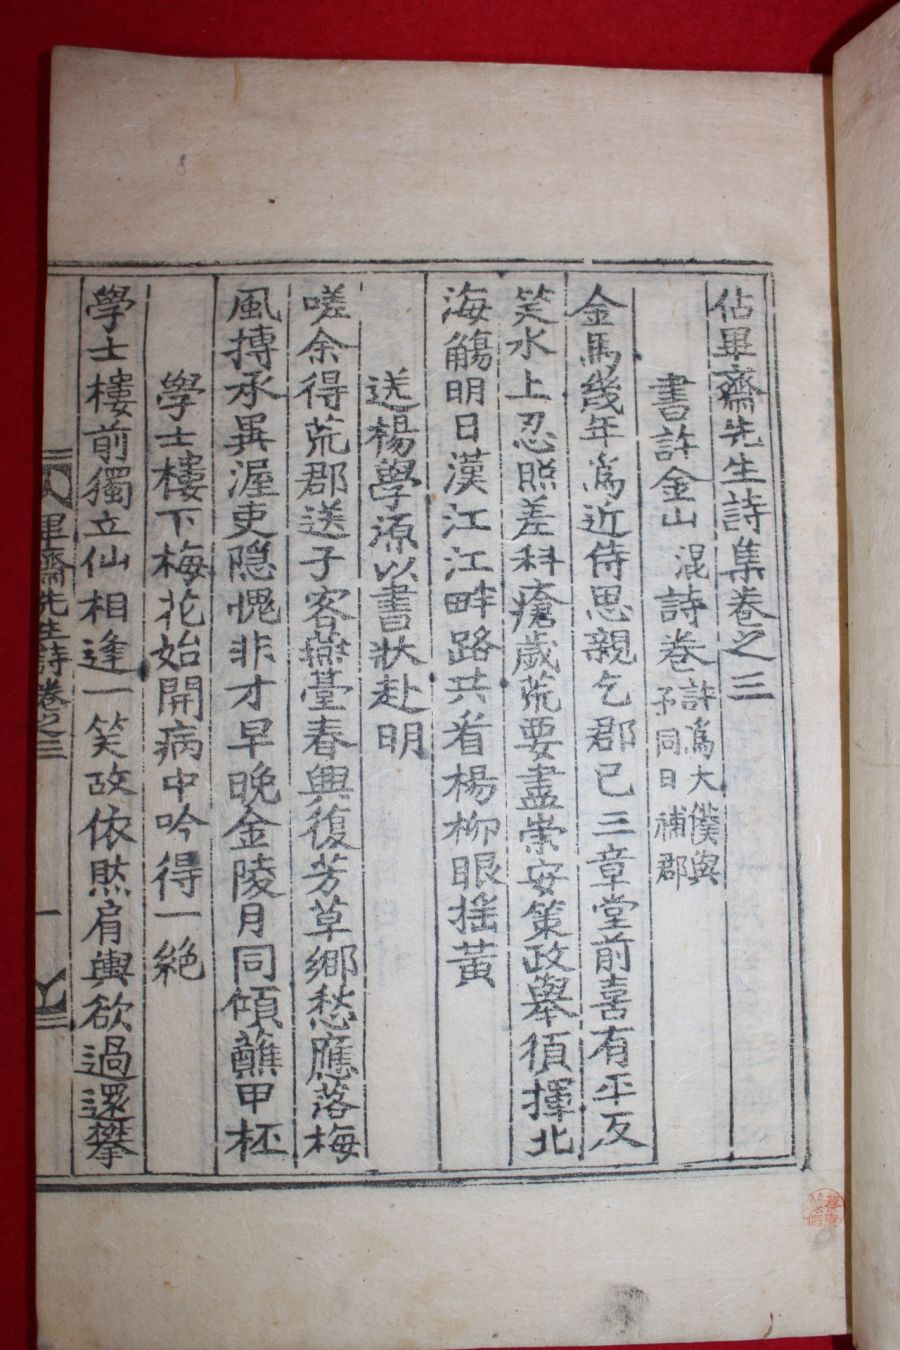 佔畢齋先生詩集卷之三
書許金山混詩卷許爲大僕與予同日補郡
金馬幾年爲近侍思親乞郡已三章堂前喜有平反
笑水上忍照差科瘡歲荒要盡崇安策政擧須揮北
海觴明日漢江江畔路共看楊柳眼搖黃
送楊學源以書狀赴明
嗟余得荒郡送子客燕臺春興復芳草鄕愁應落梅
風摶承異渥吏隱愧非才早晩金陵月同傾蘸甲杯
學士樓下梅花始開病中吟得一絶
學士樓前獨立仙相逢一笑故依然肩輿欲過還攀
畢齋先生詩卷之三
一